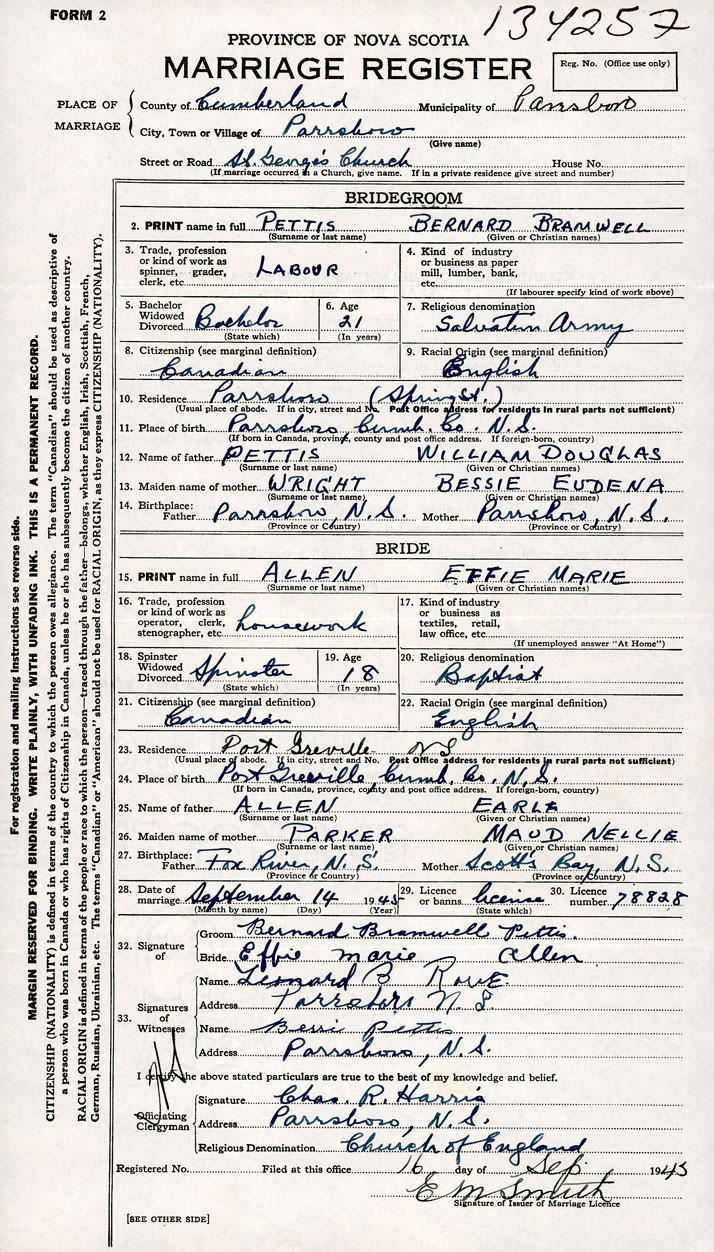 FORM 2
134257
PROVINCE OF NOVA SCOTIA
MARRIAGE REGISTER
Reg. No. (Office use only)
PLACE OF MARRIAGE
County of Cumberland Municipality of Parrsboro
City, Town or Village of Parrsboro
(Give name)
Street or Road St. George's Church House No.
(If marriage occurred in a Church, give name. If in a private residence give street and number)
BRIDEGROOM
2. PRINT name in full PETTIS BERNARD BRAMWELL
(Surname or last name) (Given or Christian names)
3. Trade, profession or kind of work as spinner, grader, clerk, etc. LABOUR
4. Kind of industry or business as paper mill, lumber, bank, etc.
(If labourer specify kind of work above)
5. Bachelor Widowed Divorced Bachelor
(State which)
6. Age 21
(In years)
7. Religious denomination
Salvation Army
8. Citizenship (see marginal definition)
Canadian
9. Racial Origin (see marginal definition)
English
10. Residence Parrsboro (Spring St.)
(Usual place of abode. If in city, street and No. Post Office address for residents in rural parts not sufficient)
11. Place of birth Parrsboro, Cumb. Co. N.S.
(If born in Canada, province, county and post office address. If foreign-born, country)
12. Name of father PETTIS WILLIAM DOUGLAS
(Surname or last name) (Given or Christian names)
13. Maiden name of mother WRIGHT BESSIE EUDENA
(Surname or last name) (Given or Christian names)
14. Birthplace: Father Parrsboro, N.S. Mother Parrsboro, N.S.
(Province or Country) (Province or Country)
BRIDE
15. PRINT name in full ALLEN EFFIE MARIE
(Surname or last name) (Given or Christian names)
16. Trade, profession or kind of work as operator, clerk, stenographer, etc. housework
17. Kind of industry or business as textiles, retail, law office, etc.
(If unemployed answer "At Home")
18. Spinster Widowed Divorced Spinster
(State which)
19. Age 18
(In years)
20. Religious denomination
Baptist
21. Citizenship (see marginal definition)
Canadian
22. Racial Origin (see marginal definition)
English
23. Residence Port Greville NS
(Usual place of abode. If in city, street and No. Post Office address for residents in rural parts not sufficient)
24. Place of birth Port Greville, Cumb. Co. N.S.
(If born in Canada, province, county and post office address. If foreign-born, country)
25. Name of father ALLEN EARLE
(Surname or last name) (Given or Christian names)
26. Maiden name of mother PARKER MAUD NELLIE
(Surname or last name) (Given or Christian names)
27. Birthplace: Father Fox River, N.S. Mother Scott's Bay, N.S.
(Province or Country) (Province or Country)
28. Date of marriage September 14 1945
(Month by name) (Day) (Year)
29. Licence or banns license
(State which)
30. Licence number 78828
32. Signature of
Groom Bernard Bramwell Pettis.
Bride Effie marie Allen
33. Signatures of Witnesses
Name Leonard B Rowe.
Address Parrsboro N.S.
Name Bessie Pettis
Address Parrsboro, N.S.
I certify the above stated particulars are true to the best of my knowledge and belief.
Officiating Clergyman
Signature Chas. R. Harris
Address Parrsboro, N.S.
Religious Denomination Church of England
Registered No. Filed at this office 16 day of Sep. 1945
E M Smith
Signature of Issuer of Marriage Licence
[SEE OTHER SIDE]
For registration and mailing instructions see reverse side.
MARGIN RESERVED FOR BINDING. WRITE PLAINLY, WITH UNFADING INK. THIS IS A PERMANENT RECORD.
CITIZENSHIP (NATIONALITY) is defined in terms of the country to which the person owes allegiance. The term "Canadian" should be used as descriptive of
a person who was born in Canada or who has rights of Citizenship in Canada, unless he or she has subsequently become the citizen of another country.
RACIAL ORIGIN is defined in terms of the people or race to which the person—traced through the father—belongs, whether English, Irish, Scottish, French,
German, Russian, Ukrainian, etc. The terms "Canadian" or "American" should not be used for RACIAL ORIGIN, as they express CITIZENSHIP (NATIONALITY).